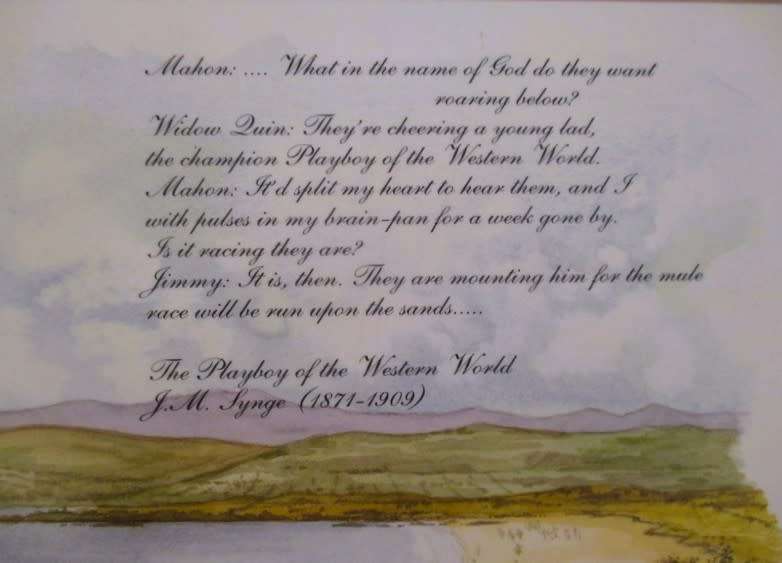 Mahon: .... What in the name of God do they want
roaring below?
Widow Quin: They're cheering a young lad,
the champion Playboy of the Western World.
Mahon: It'd split my heart to hear them, and I
with pulses in my brain-pan for a week gone by.
Is it racing they are?
Jimmy: It is, then. They are mounting him for the mule
race will be run upon the sands.....
The Playboy of the Western World
J.M. Synge (1871-1909)